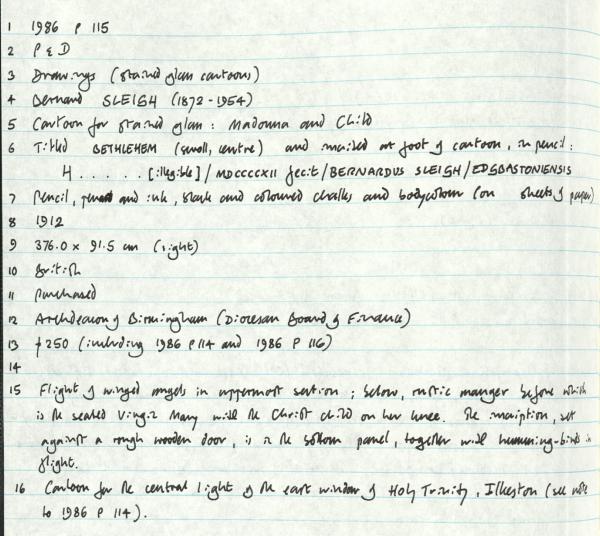 1 1986 P 115
2 P & D
3 Drawings (stained glass cartoons)
4 Bernard SLEIGH (1872-1954)
5 Cartoon for stained glass: Madonna and Child
6 Titled BETHLEHEM (scroll, centre) and inscribed at foot of cartoon, in pencil:
H . . . . . [illegible] / MDCCCCXII fecit / BERNARDUS SLEIGH / EDGBASTONIENSIS
7 Pencil, and ink, black and coloured chalks and bodycolour (on sheets of paper)
8 1912
9 376.0 x 91.5 cm (sight)
10 British
11 Purchased
12 Archdeacon of Birmingham (Diocesan Board of Finance)
13 £250 (including 1986 P114 and 1986 P 116)
14
15 Flight of winged angels in uppermost section; below, rustic manger before which
is the seated Virgin Mary with the Christ child on her knee. The inscription, set
against a rough wooden door, is in the bottom panel, together with humming-birds in
flight.
16 Cartoon for the central light of the east window of Holy Trinity, Ilkeston (see note
to 1986 P 114).